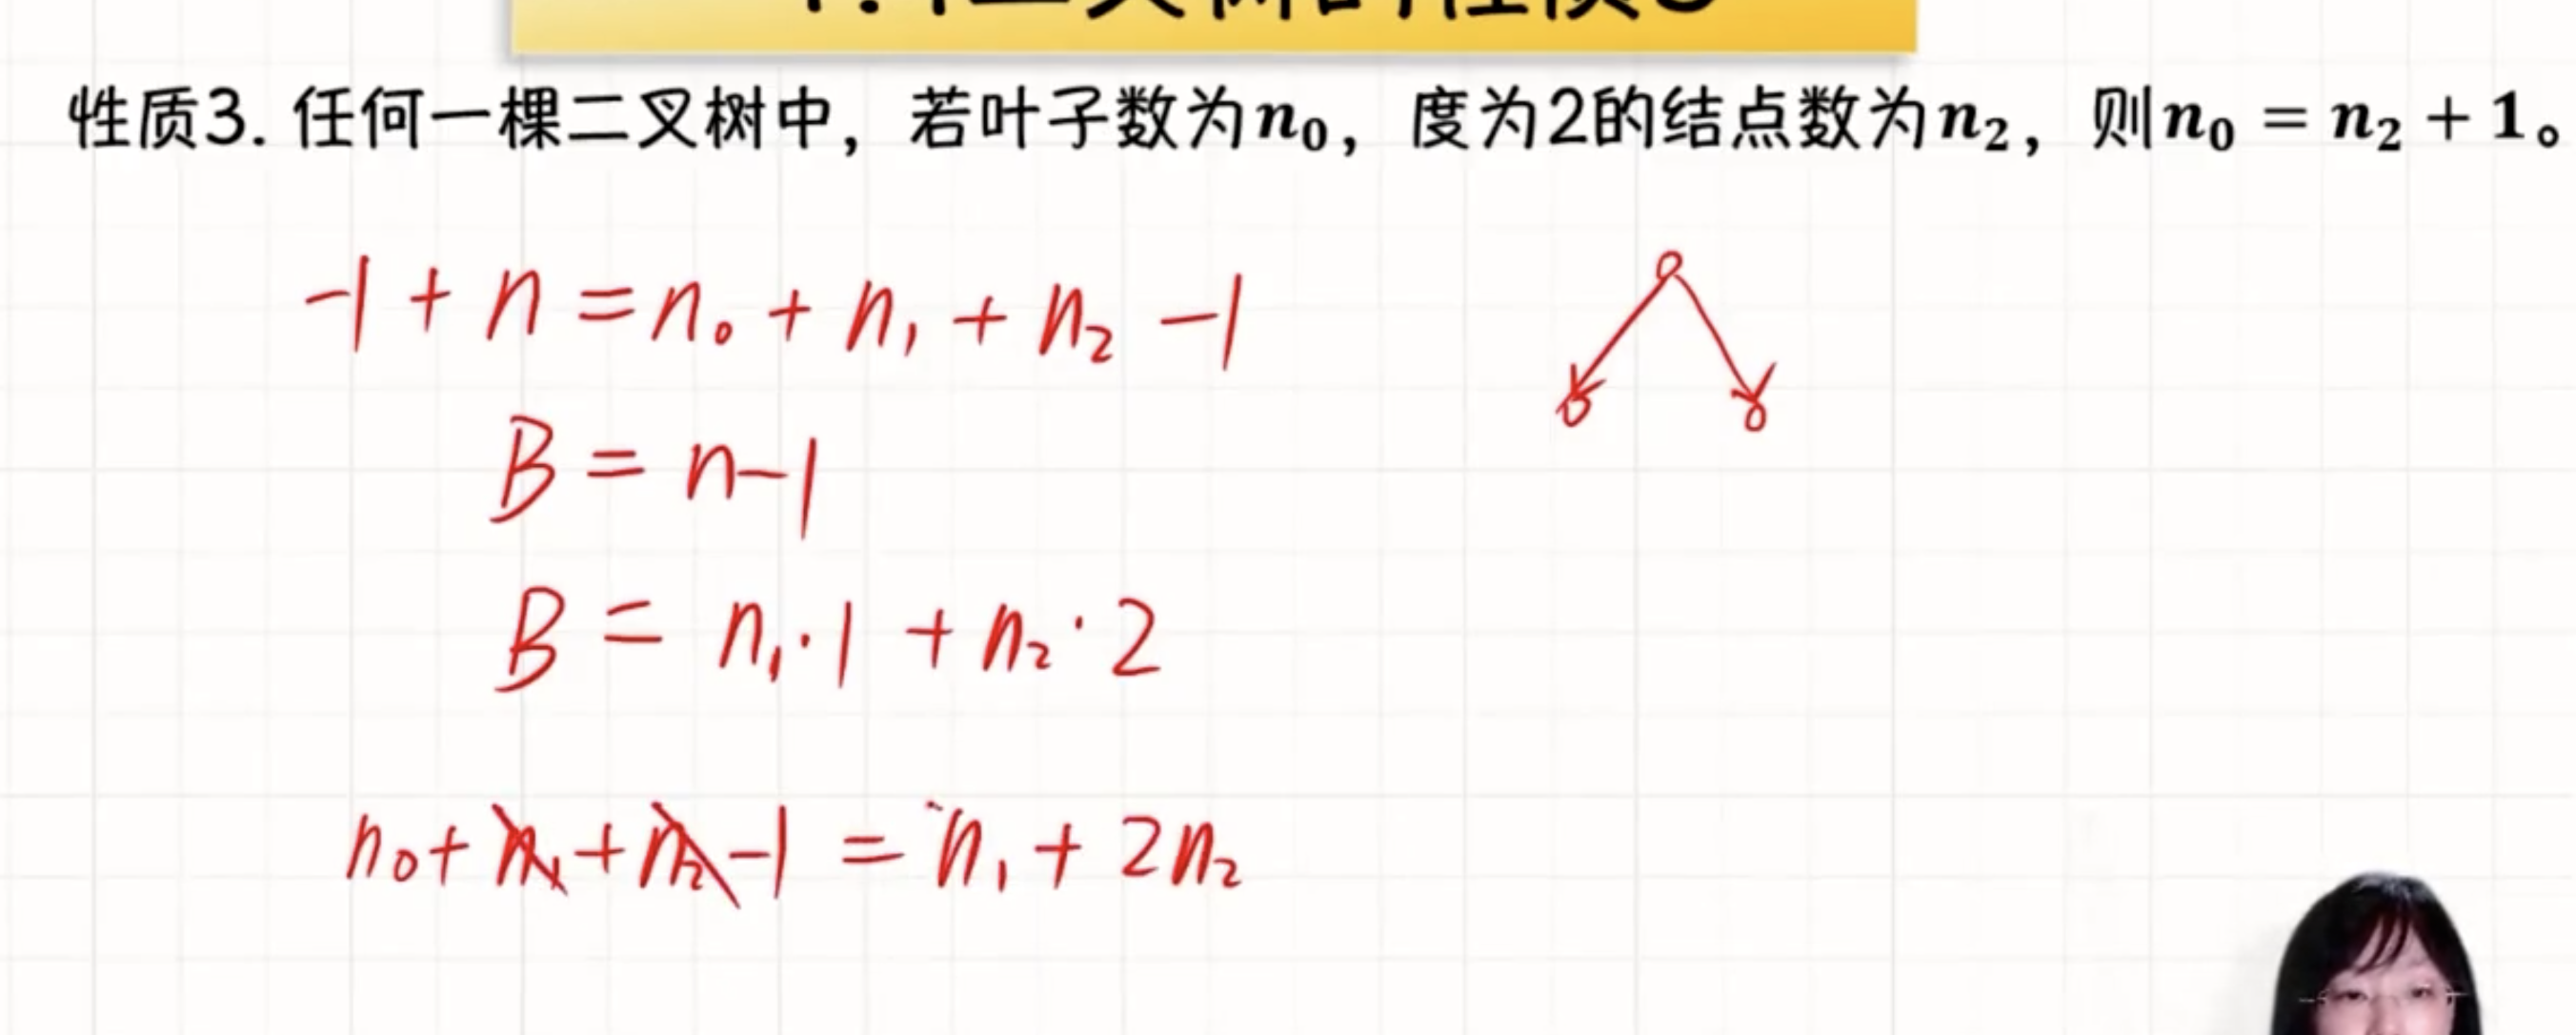 二叉树的性质3
性质3. 任何一棵二叉树中，若叶子数为n₀，度为2的结点数为n₂，则n₀ = n₂ + 1。
-1 + n = n₀ + n₁ + n₂ -1
B = n-1
B = n₁·1 + n₂·2
n₀+n₁+n₂-1 = n₁+2n₂